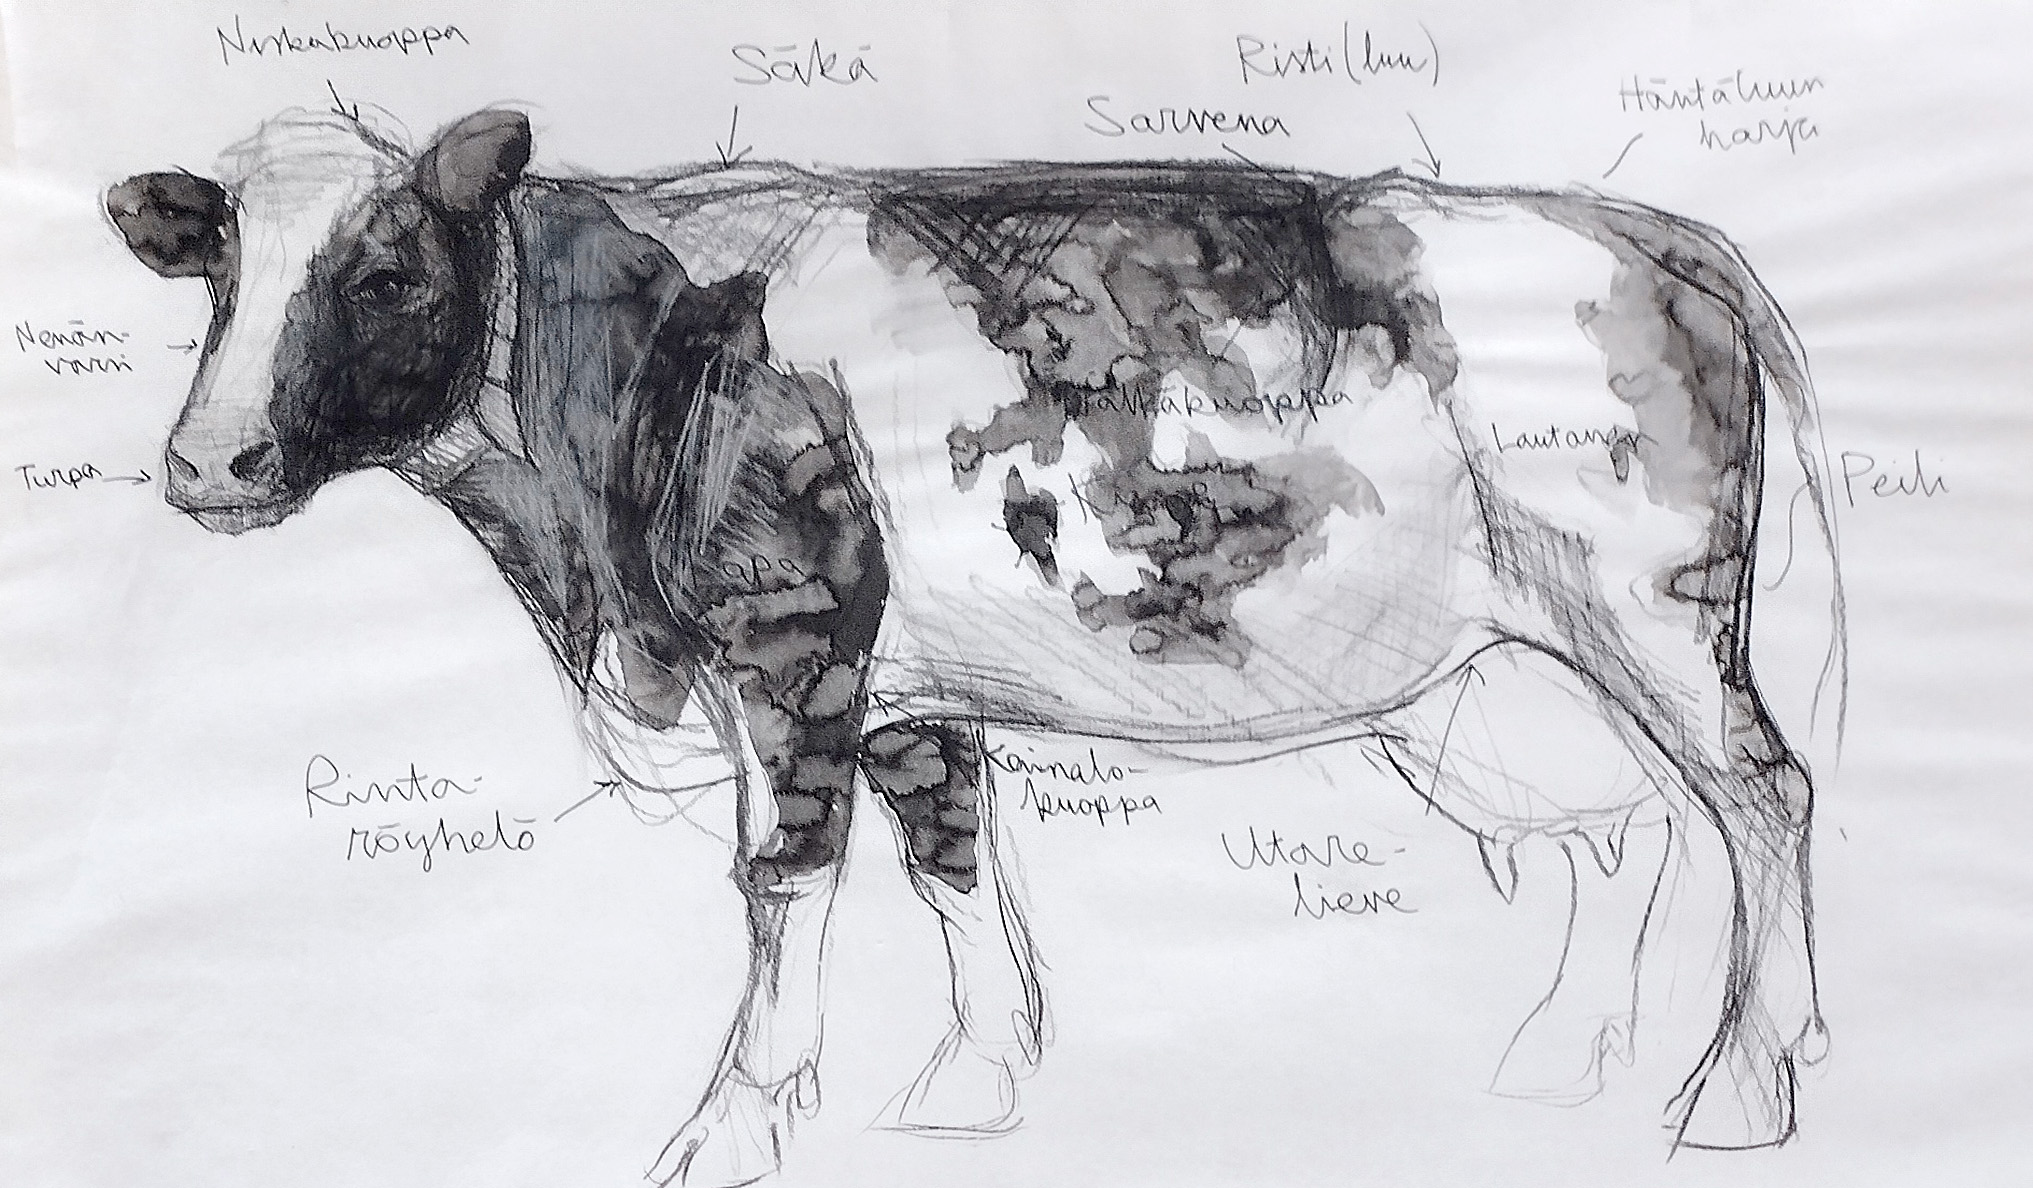 Niskakuoppa
Säkä
Risti(luu)
Sarvena
Häntäluun
harja
Nenän-
varsi
Turpa
Nälkäkuoppa
Lautanen
Peili
Lapa
Rinta-
röyhelö
Kainalo-
kuoppa
Utare-
lieve